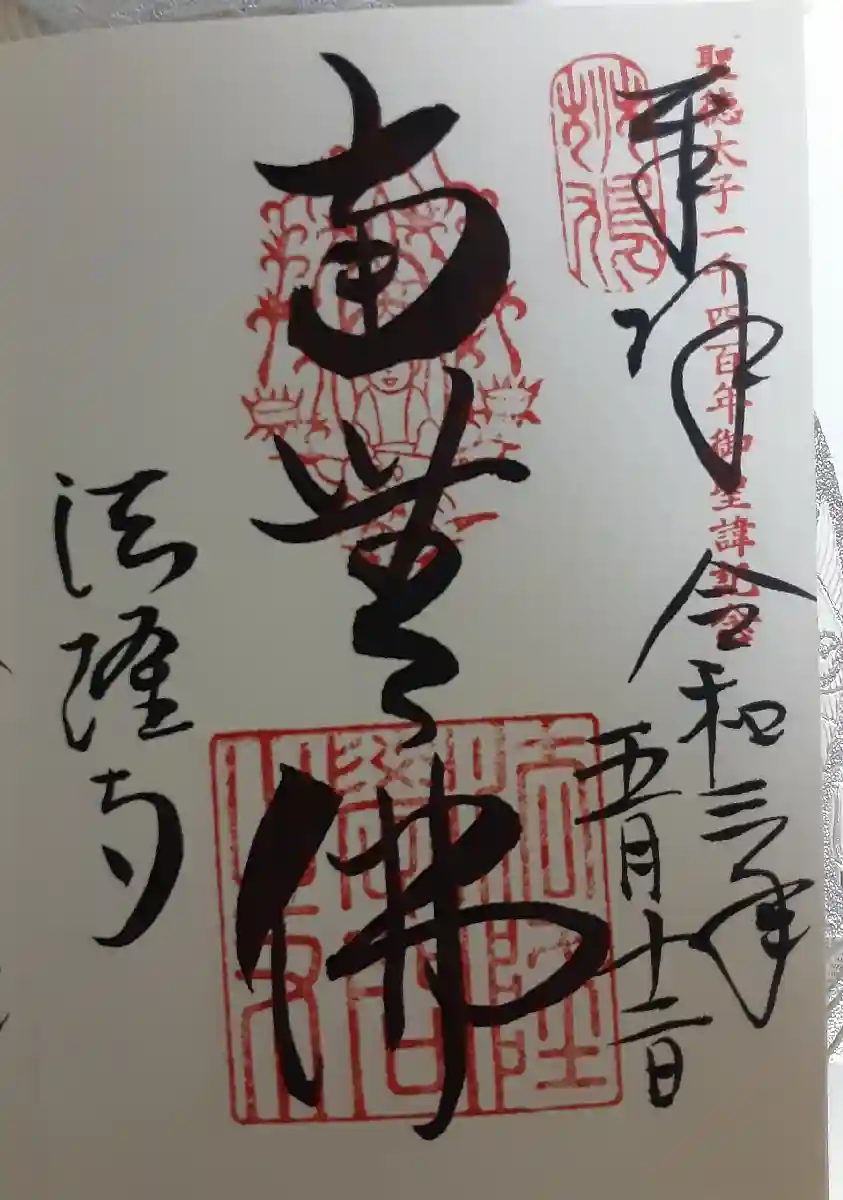 聖徳太子一千四百年御聖諱記念
奉拝
令和三年
五月十二日
南無佛
法隆寺